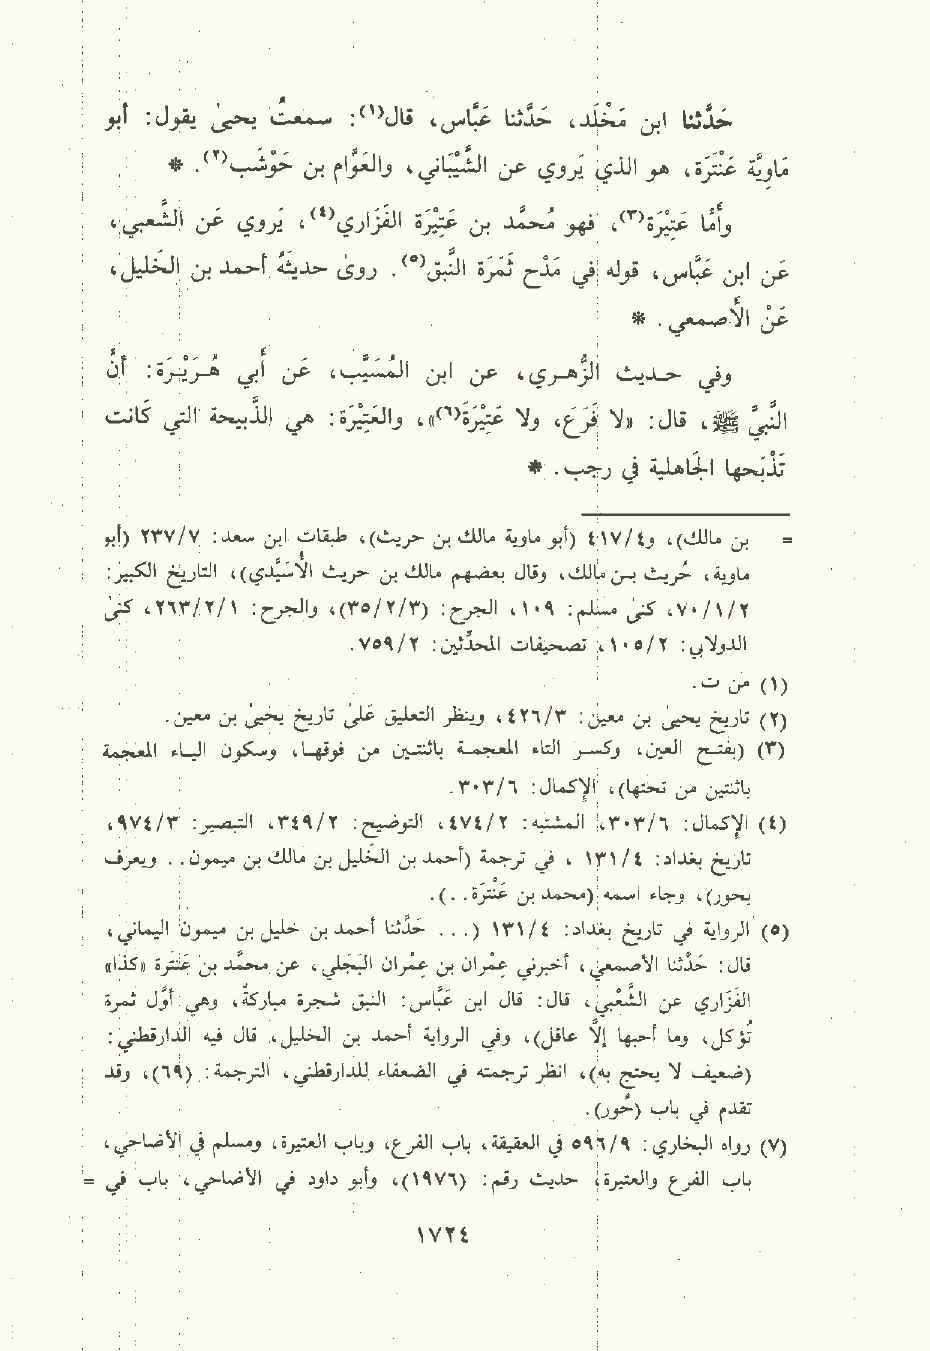 حَدَّثنا ابن مَخْلَد، حَدَّثنا عَبَّاس، قال(١): سمعتُ يحيىٰ يقول: أبو
مَاوِيَّة عَنْتَرَة، هو الذي يَروي عن الشَّيْبَاني، والعَوَّام بن حَوْشَب(٢). *
وأَمَّا عَتِيْرَة(٣)، فهو مُحمَّد بن عَتِيْرَة الفَزَاري(٤)، يَروي عَن الشَّعبي،
عَن ابن عَبَّاس، قوله في مَدْح ثَمَرَة النَّبق(٥). روىٰ حديثَهُ أحمد بن الخَليل،
عَنْ الأَصمعي. *
وفي حـديث الزُّهـري، عن ابن المُسَيَّب، عَن أَبي هُـرَيْـرَة: أنَّ
النَّبيَّ ﷺ، قال: «لا فَرَعَ، ولا عَتِيْرَةَ(٦)»، والعَتِيْرَة: هي الذَّبيحة التي كَانت
تَذْبَحها الجَاهلية في رجب. *
= بن مالك)، و٤١٧/٤ (أبو ماوية مالك بن حريث)، طبقات ابن سعد: ٢٣٧/٧ (أبو
ماوية، حُريث بـن مالك، وقال بعضهم مالك بن حريث الأَسَيَّدي)، التاريخ الكبير:
٧٠/١/٢، كنىٰ مسلم: ١٠٩، الجرح: (٣٥/٢/٣)، والجرح: ٢٦٣/٢/١، كنىٰ
الدولابي: ١٠٥/٢، تصحيفات المحدِّثين: ٧٥٩/٢.
(١) من ت.
(٢) تاريخ يحيىٰ بن معين: ٤٢٦/٣، وينظر التعليق عَلىٰ تاريخ يحيىٰ بن معين.
(٣) (بفتـح العين، وكسـر التاء المعجمـة باثنتـين من فوقهـا، وسكون اليـاء المعجمة
باثنتين من تحتها)، الإكمال: ٣٠٣/٦.
(٤) الإكمال: ٣٠٣/٦، المشتبه: ٤٧٤/٢، التوضيح: ٣٤٩/٢، التبصير: ٩٧٤/٣،
تاريخ بغداد: ١٣١/٤ ، في ترجمة (أحمد بن الخليل بن مالك بن ميمون.. ويعرف
بحور)، وجاء اسمه (محمد بن عَنْتَرَة..).
(٥) الرواية في تاريخ بغداد: ١٣١/٤ (... حَدَّثنا أحمد بن خليل بن ميمون اليماني،
قال: حَدَّثنا الأصمعي، أخبرني عِمْران بن عِمْران البَجَلي، عن محمَّد بن عَنْتَرة «كذا»
الفَزَاري عن الشَّعْبي، قال: قال ابن عَبَّاس: النبق شجرة مباركةٌ، وهي أوَّل ثمرة
تُؤكل، وما أحبها إلَّا عاقل)، وفي الرواية أحمد بن الخليل، قال فيه الدارقطني:
(ضعيف لا يحتج به)، انظر ترجمته في الضعفاء للدارقطني، الترجمة: (٦٩)، وقد
تقدم في باب (حُور).
(٧) رواه البخاري: ٥٩٦/٩ في العقيقة، باب الفرع، وباب العتيرة، ومسلم في الأضاحي،
باب الفرع والعتيرة، حديث رقم: (١٩٧٦)، وأبو داود في الأضاحي، باب في =
١٧٢٤